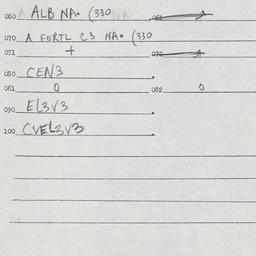 060 ALB NA. (330 061
070 A FORTL C3 NA. (330
071 + 072
080 CEN3 .
081 0 082 0
090 EL3V3 .
100 CVEL3V3 .